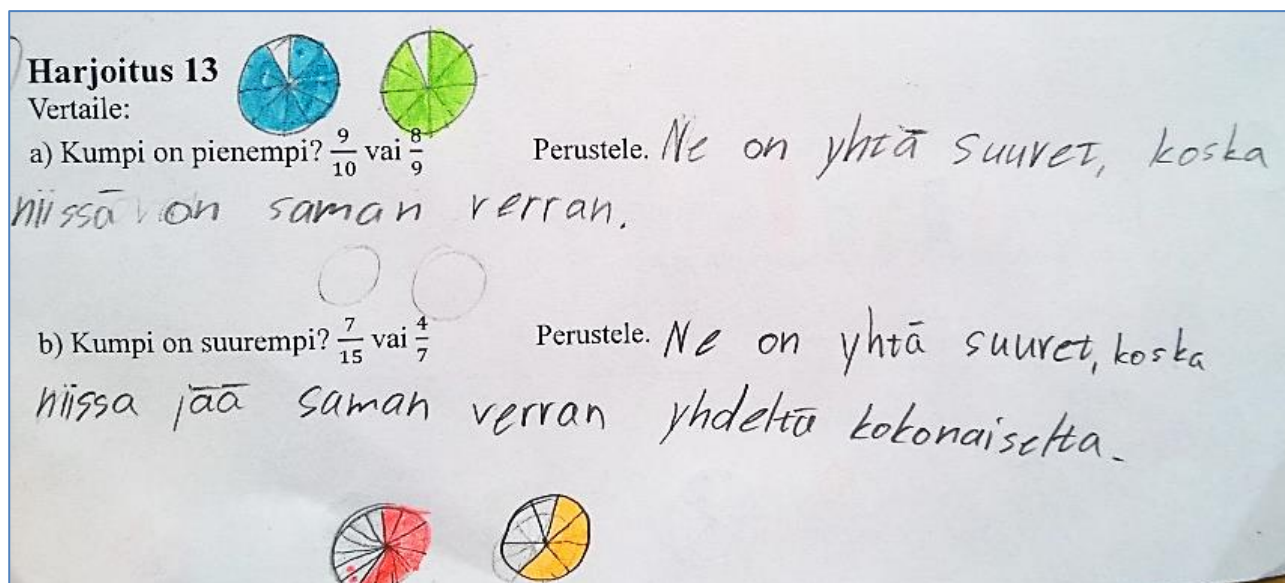 Harjoitus 13
Vertaile:
a) Kumpi on pienempi? 9/10 vai 8/9 Perustele. Ne on yhtä suuret, koska
niissä on saman verran.
b) Kumpi on suurempi? 7/15 vai 4/7 Perustele. Ne on yhtä suuret, koska
niissa jää saman verran yhdeltä kokonaiselta.